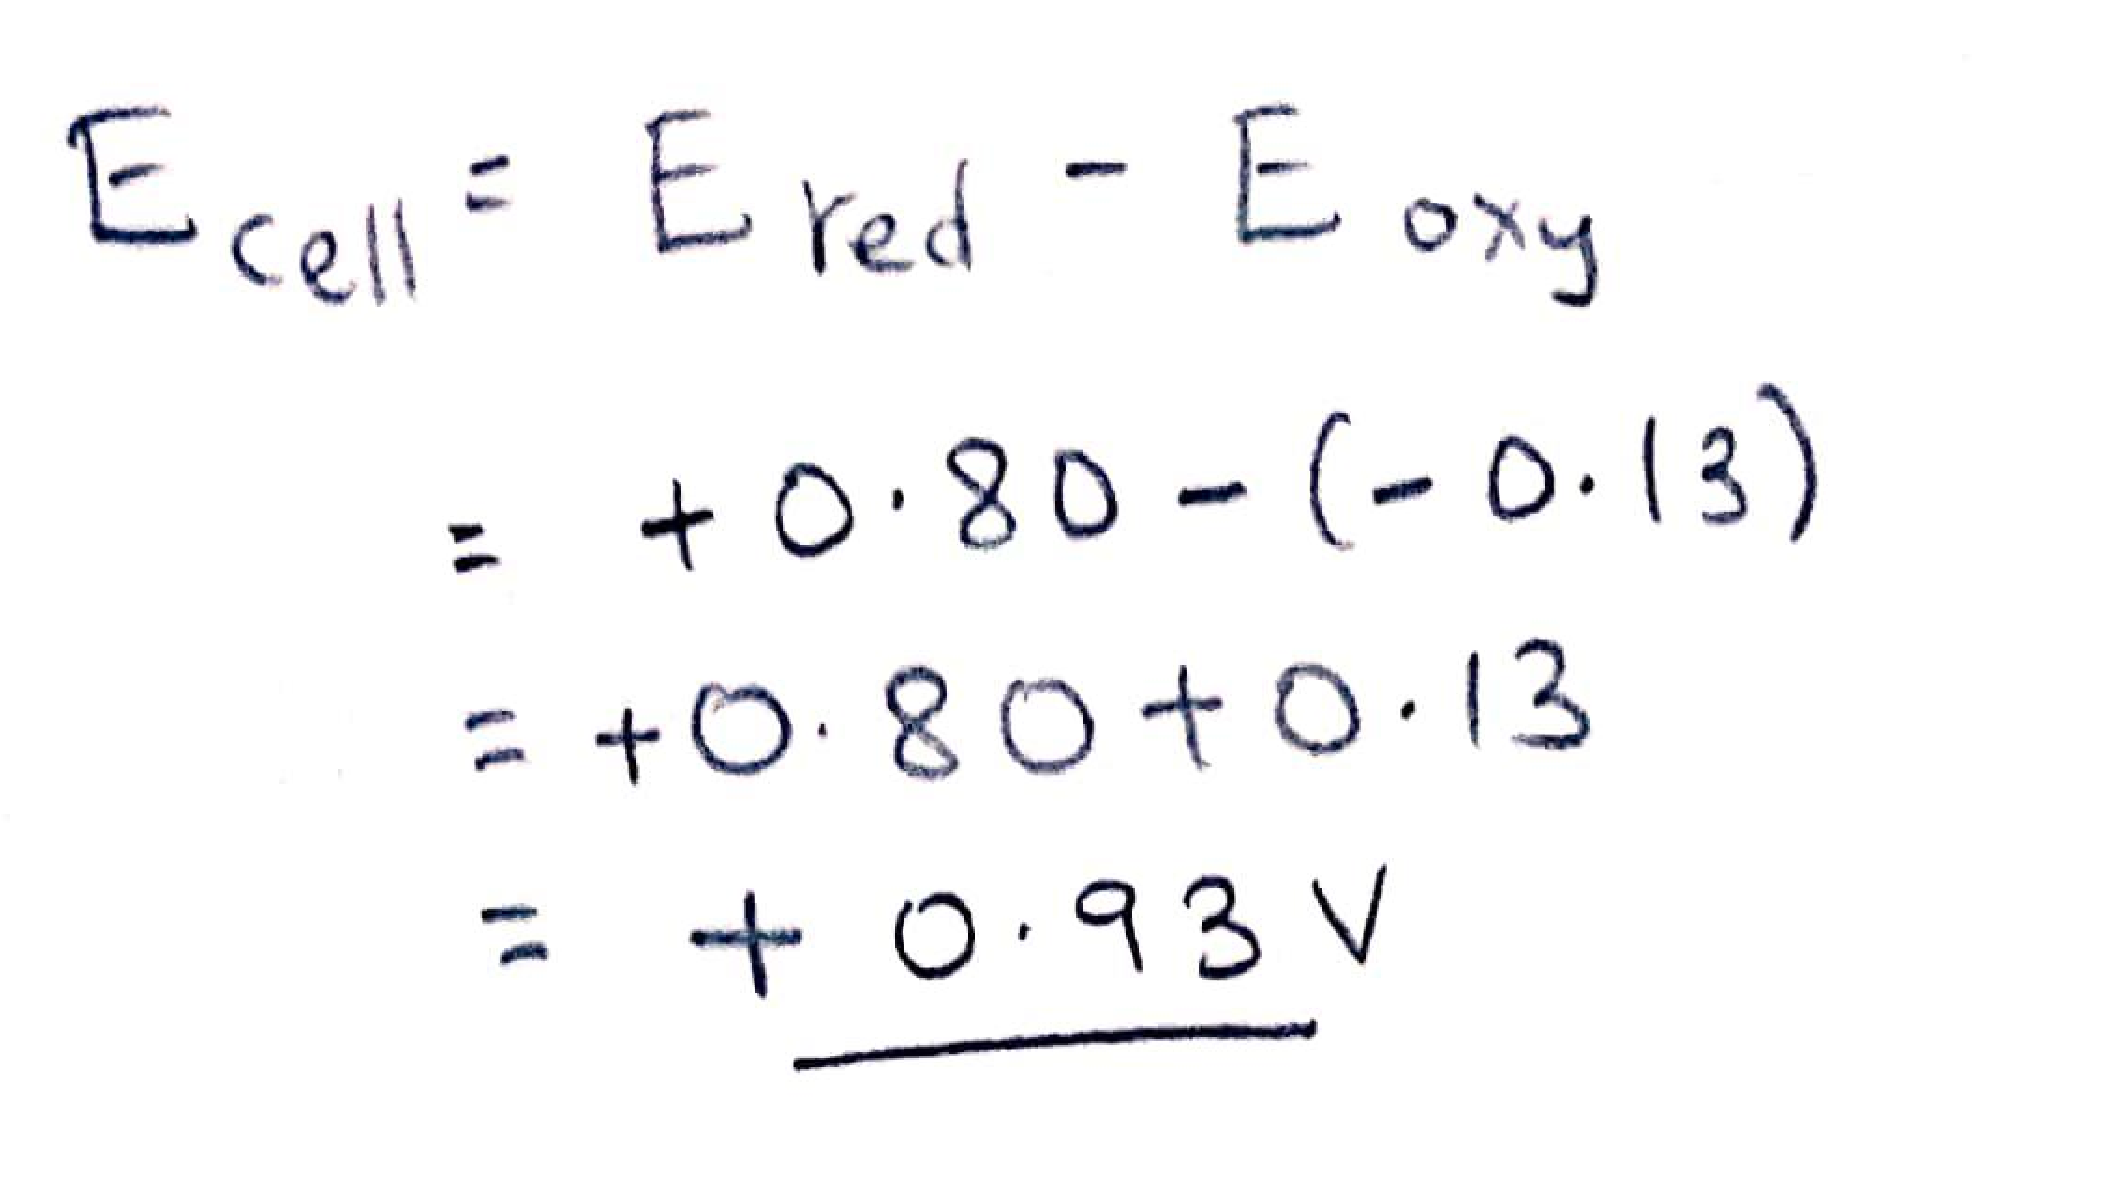 E cell = E red - E oxy
= + 0.80 - (- 0.13)
= +0.80 + 0.13
= + 0.93 V